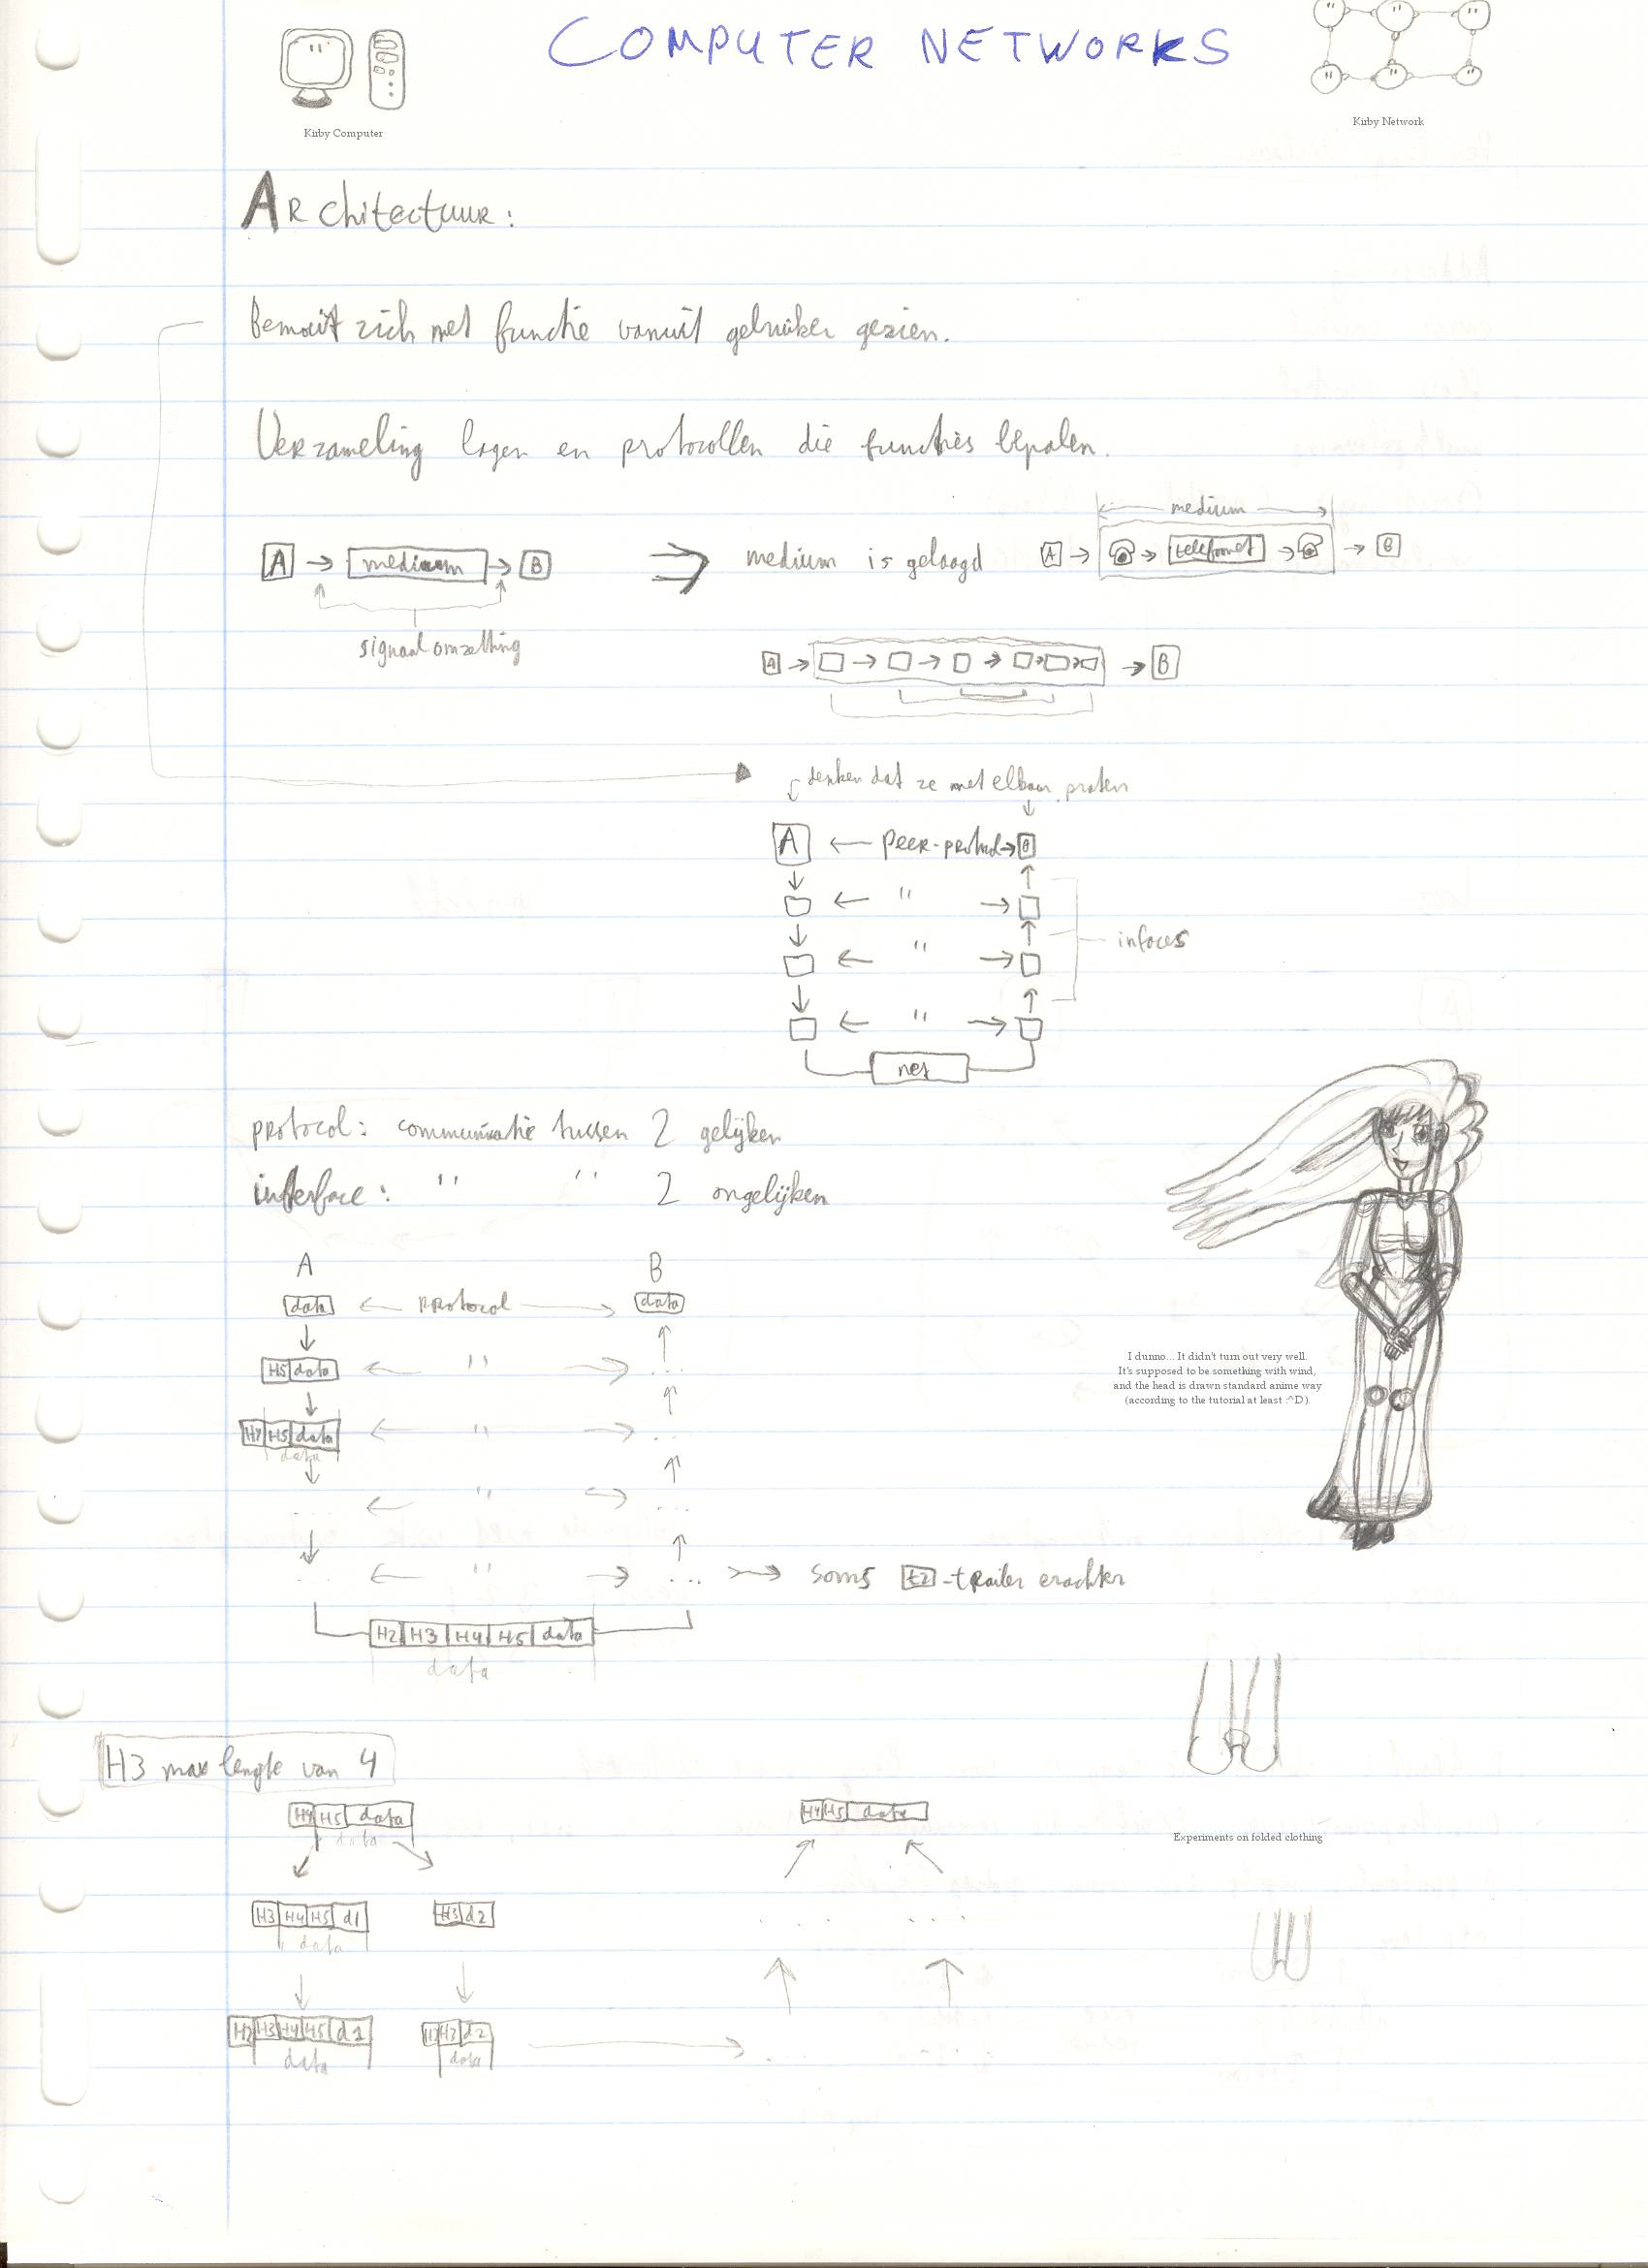 COMPUTER NETWORKS
Kirby Computer
Kirby Network
ARchitectuur:
Bemoeit zich met functie vanuit gebruiker gezien.
Verzameling lagen en protocollen die functies bepalen.
medium
A → medium → B
medium is gelaagd
A → → telefoonnet → → B
signaalomzetting
A → → → → → B
denken dat ze met elkaar praten
A ← peer-protocol → B
← " →
← " → infaces
← " →
net
protocol: communicatie tussen 2 gelijken
interface: " " 2 ongelijken
A B
data ← protocol → data
H5 data ← " → ...
H4 H5 data ← " → ...
data
... ← " → ...
... ← " → ... >→ soms t2 -trailer erachter
H2 H3 H4 H5 data
data
I dunno... It didn't turn out very well.
It's supposed to be something with wind,
and the head is drawn standard anime way
(according to the tutorial at least :^D).
H3 max lengte van 4
H4 H5 data H4 H5 data
data
Experiments on folded clothing
H3 H4 H5 d1 H3 d2
data
H2 H3 H4 H5 d1 H2 H3 d2
data data